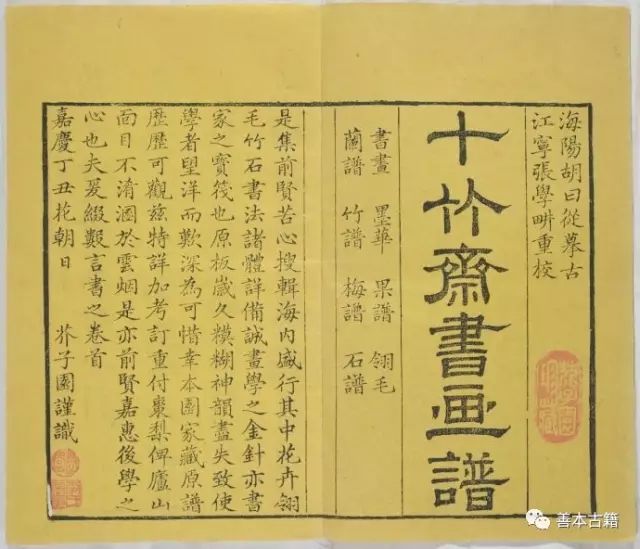 海陽胡曰從摹古
江寧張學畊重校
十竹齋書画譜
書畫 墨華 果譜 翎毛
蘭譜 竹譜 梅譜 石譜
是集前賢苦心搜輯海內盛行其中花卉翎
毛竹石書法諸體詳備誠畫學之金針亦書
家之寶筏也原板歲久糢糊神韻盡失致使
學者望洋而歎深為可惜幸本園家藏原譜
歷歷可觀茲特詳加考訂重付棗梨俾廬山
面目不淆溷於雲烟是亦前賢嘉惠後學之
心也夫爰綴數言書之卷首
嘉慶丁丑花朝日 芥子園謹識
善本古籍